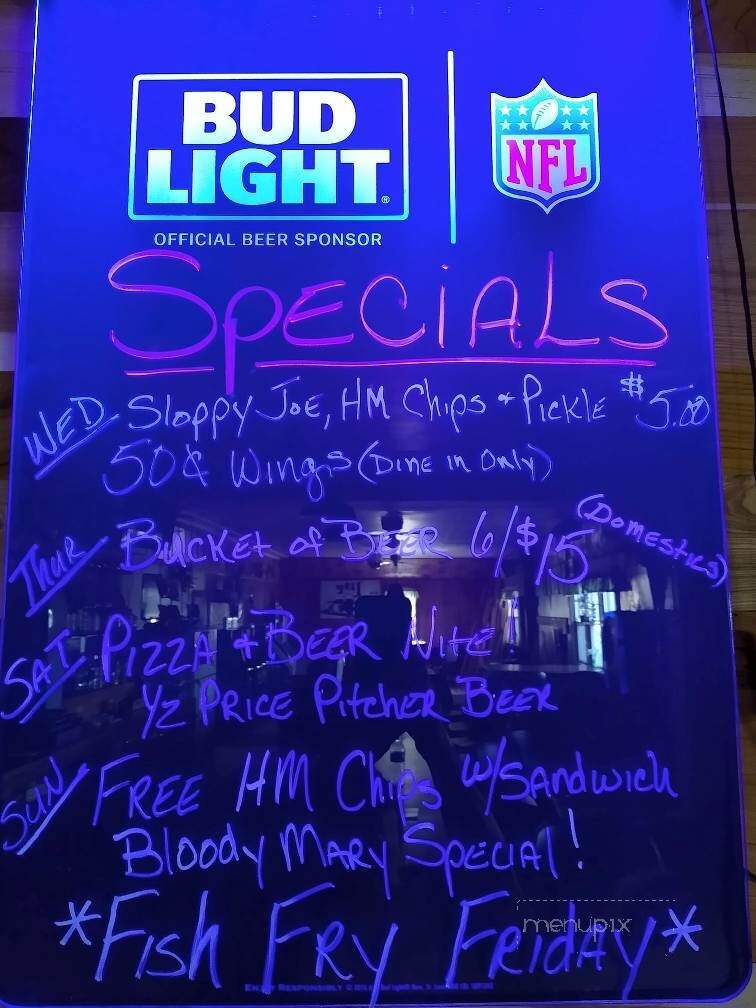 BUD
LIGHT®
OFFICIAL BEER SPONSOR
NFL
SPECiALS
WED Sloppy JOE, HM Chips + PicklE $5.00
50¢ Wings (DINE in Only)
Thur BUCKEt of BEER 6/$15 (DOMEStics)
SAT PIZZA + BEER NitE
1/2 PRICE PitchER BEER
SUN FREE HM Chips W/SANdwich
Bloody MARy SpECiAl!
*Fish FRy FRIDAY*
menupix
ENJOY RESPONSIBLY